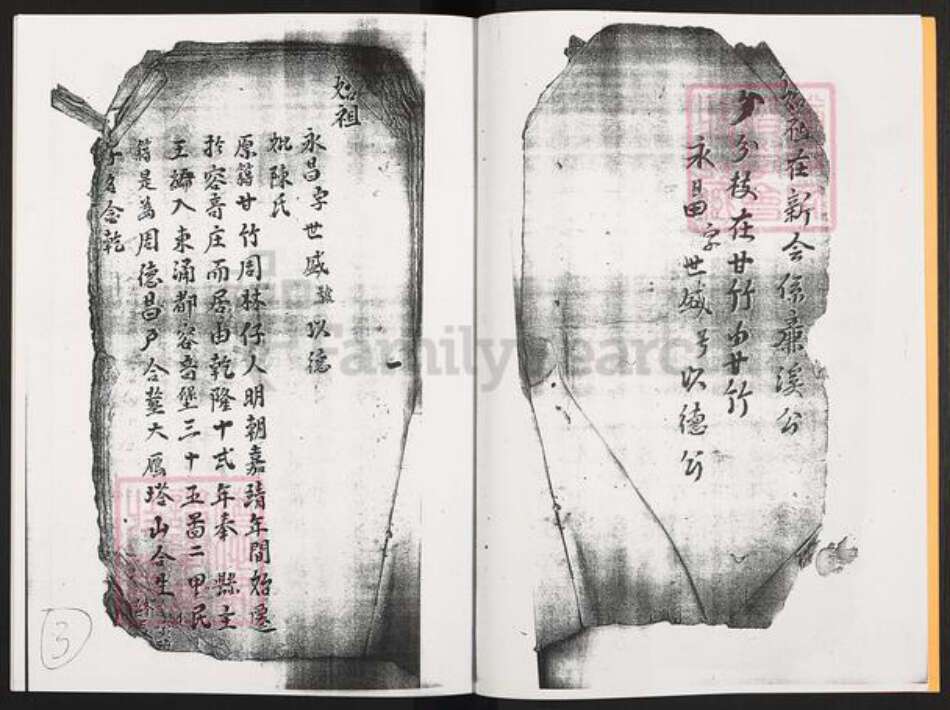 始祖在新会係廉溪公
分枝在甘竹由甘竹
永昌字世威号以德公
始祖
永昌字世威號以德
妣陳氏
原籍甘竹周林仔人明朝嘉靖年間始遷
於容奇庄而居由乾隆十弍年奉 縣主
王 入東涌都容奇堡三十五啚二甲民
籍是為周德昌户合葬大雁塔山合生
合乾
FamilySearch
3